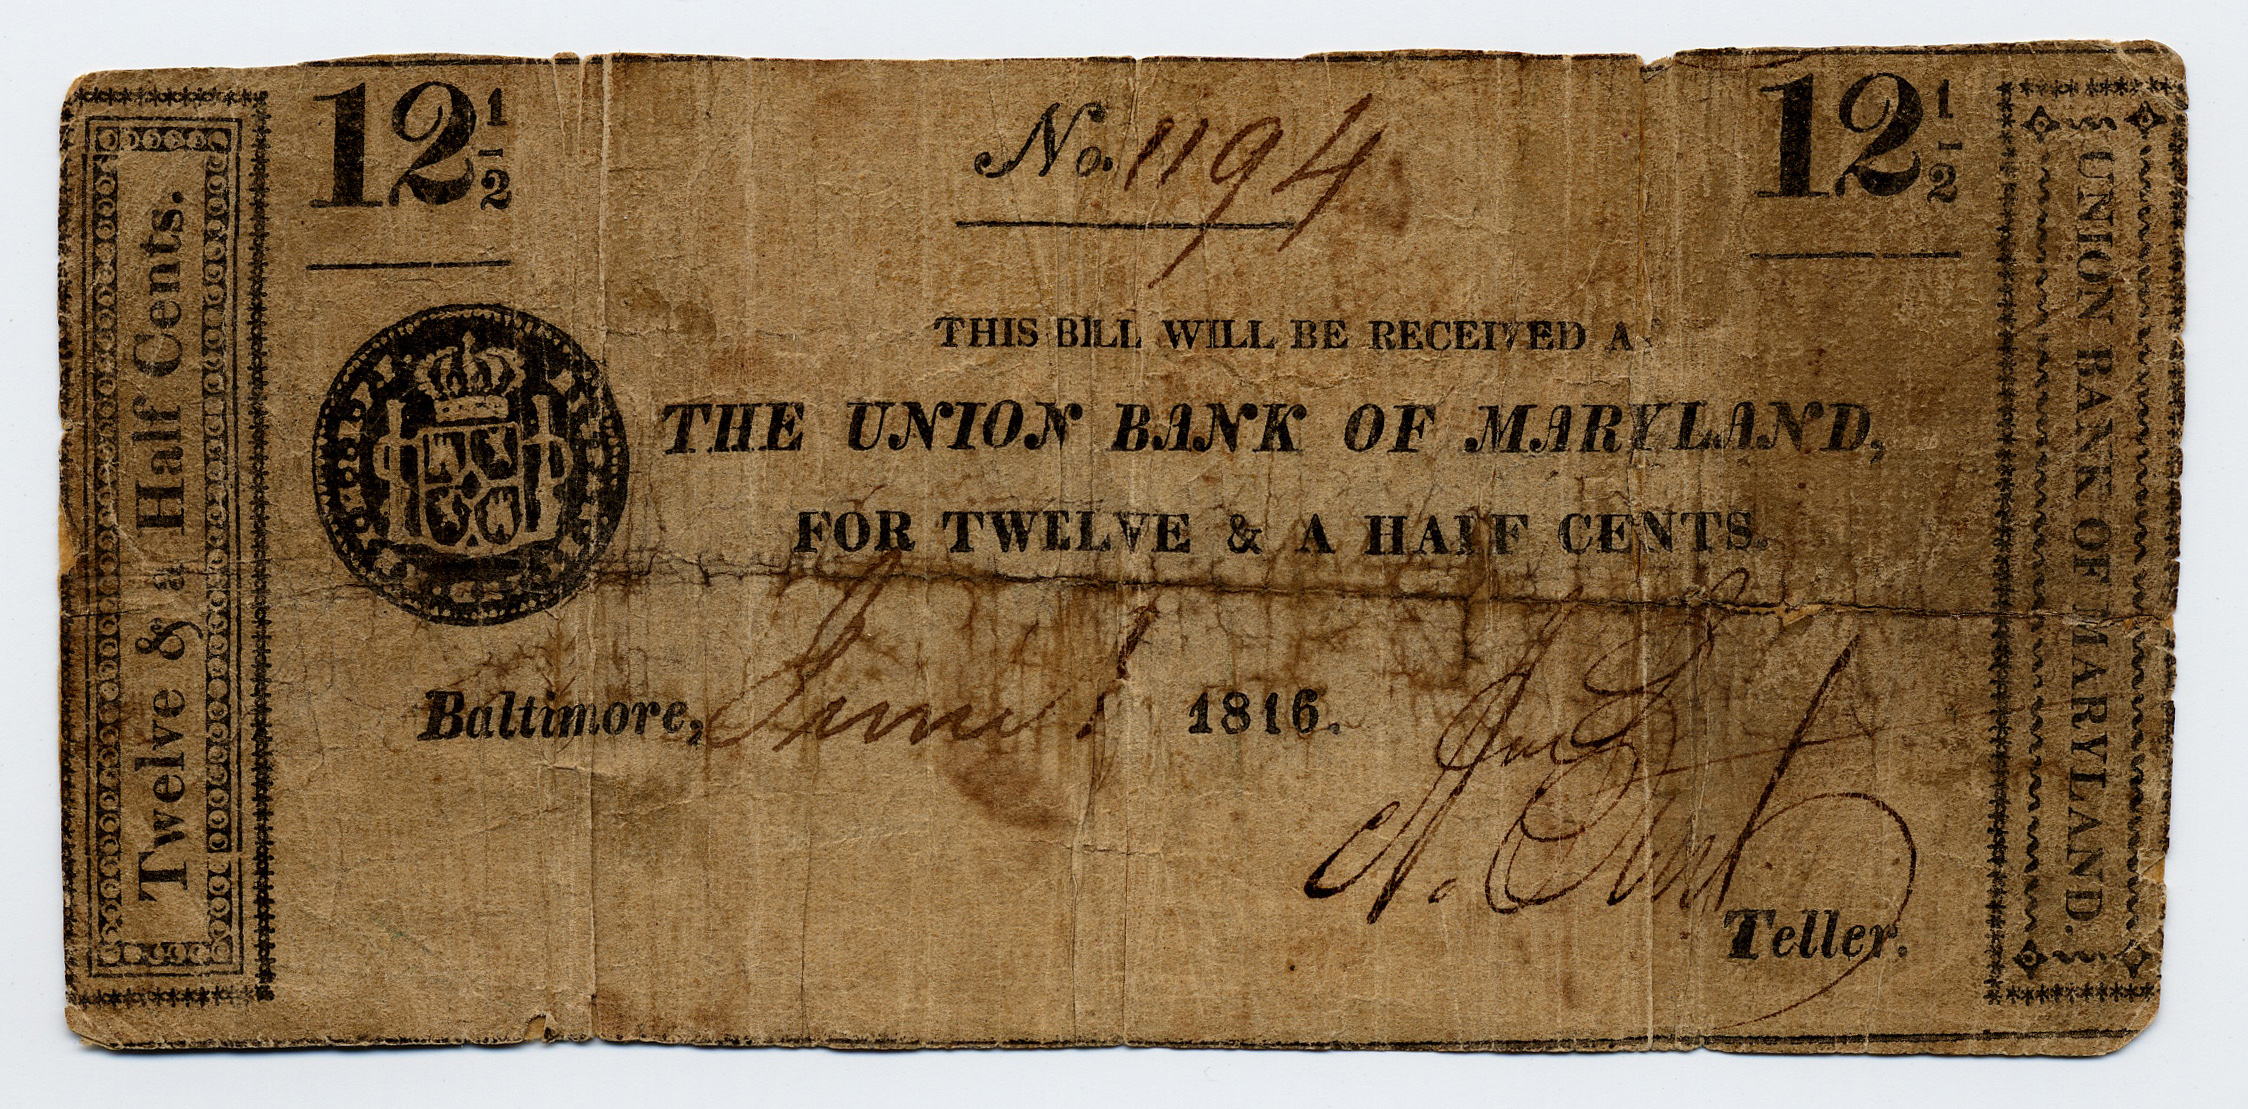 Twelve & a Half Cents.
12 1/2
No. 1194
12 1/2
THIS BILL WILL BE RECEIVED A
THE UNION BANK OF MARYLAND,
FOR TWELVE & A HALF CENTS.
Baltimore, June 1 1816.
Teller.
UNION BANK OF MARYLAND.